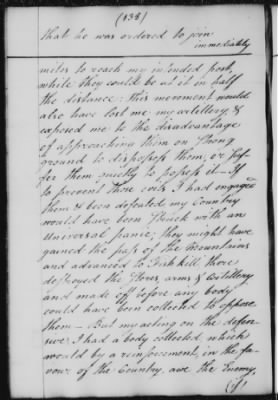 (138)
that he was ordered to join
immediately
miles to reach my intended post,
while they could be at it in half
the distance: this movement would
also have lost me my artillery, &
exposed me to the disadvantage
of approaching them on strong
ground to dispossess them, or suf-
fer them quietly to possess it — If
to prevent these evils I had engaged
them & been defeated my Country
would have been struck with an
universal panic; they might have
gained the pass of the Mountains
and advanced to Fish kill, there
destroyed the Stores, arms & artillery
and made off before any body
could have been collected to oppose
them — But my acting on the defen-
sive I had a body collected, which
would by a reinforcement, in the fa-
vour of the Country, awe the Enemy,
(if)